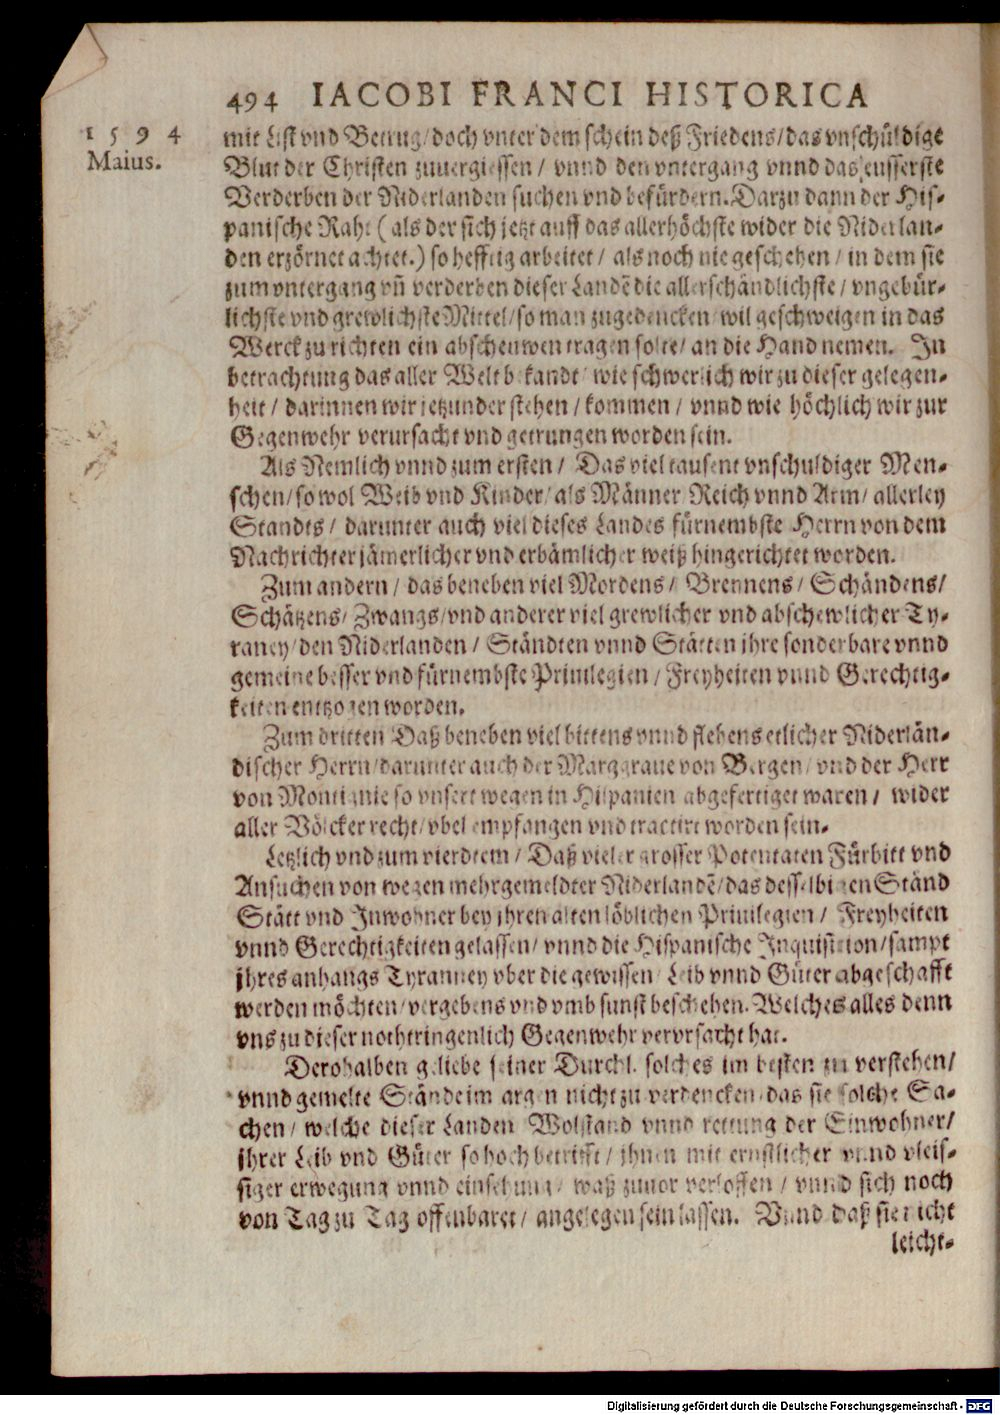 494 IACOBI FRANCI HISTORICA
1594
Maius.
mit List vnd Betrug/doch vnter dem schein deß Friedens/das vnschüldige
Blut der Christen zuuergiessen/ vnnd den vntergang vnnd das eusserste
Verderben der Niderlanden suchen vnd befürdern. Darzu dann der His-
panische Raht (als der sich jetzt auff das allerhöchste wider die Niderlan-
den erzörnet achtet.) so hefftig arbeitet/ als noch nie geschehen/ in dem sie
zum vntergang vñ verderben dieser Landẽ die allerschändlichste/ vngebür-
lichste vnd grewlichste Mittel/so man zugedencken/wil geschweigen in das
Werck zu richten ein abscheuwen tragen solte/ an die Hand nemen. In
betrachtung das aller Welt bekandt/ wie schwerlich wir zu dieser gelegen-
heit/ darinnen wir jetzunder stehen/ kommen/ vnnd wie höchlich wir zur
Gegenwehr verursacht vnd getrungen worden sein.
Als Nemlich vnnd zum ersten/ Das viel tausent vnschuldiger Men-
schen/so wol Weib vnd Kinder/als Männer Reich vnnd Arm/ allerley
Standts/ darunter auch viel dieses Landes fürnembste Herrn von dem
Nachrichter jämerlicher vnd erbämlicher weiß hingerichtet worden.
Zum andern/ das beneben viel Mordens/ Brennens/ Schändens/
Schätzens/ Zwangs/vnd anderer viel grewlicher vnd abschewlicher Ty-
raney/den Niderlanden/ Ständten vnnd Stätten ihre sonderbare vnnd
gemeine besser vnd fürnembste Priuilegien/ Freyheiten vnnd Gerechtig-
keiten entzogen worden.
Zum dritten Daß beneben viel bittens vnnd flehens etlicher Niderlän-
discher Herrn/darunter auch der Marggraue von Bergen/ vnd der Herr
von Montignie so vnsert wegen in Hispanien abgefertiget waren/ wider
aller Völcker recht/vbel empfangen vnd tractirt worden sein.
Letzlich vnd zum vierdtem/ Daß vieler grosser Potentaten Fürbitt vnd
Ansuchen von wegen mehrgemeldter Niderlandẽ/das desselbigen Ständ
Stätt vnd Inwohner bey jhren alten löblichen Priuilegien/ Freyheiten
vnnd Gerechtigkeiten gelassen/ vnnd die Hispanische Inquisition/sampt
jhres anhangs Tyranney vber die gewissen/ Leib vnnd Güter abgeschafft
werden möchten/vergebens vnd vmb sunst beschehen. Welches alles denn
vns zu dieser nothtringenlich Gegenwehr vervrsacht hat.
Derohalben geliebe seiner Durchl. solches im besten zu verstehen/
vnnd gemelte Stände im argen nicht zu verdencken/das sie solche Sa-
chen/ welche dieser Landen Wolstand vnnd rettung der Einwohner/
jhrer Leib vnd Güter so hoch betrifft/ jhnen mit ernstlicher vnnd vleis-
siger erwegung vnnd einsehung/ waß zuuor verloffen/ vnnd sich noch
von Tag zu Tag offenbaret/ angelegen sein lassen. Vnnd daß sie nicht
leicht-
Digitalisierung gefördert durch die Deutsche Forschungsgemeinschaft - DFG